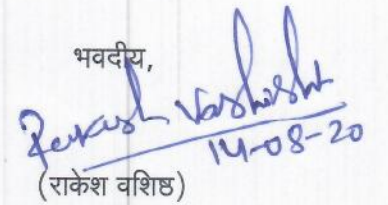 भवदीय,
Rakesh Vashisht
14-08-20
(राकेश वशिष्ठ)